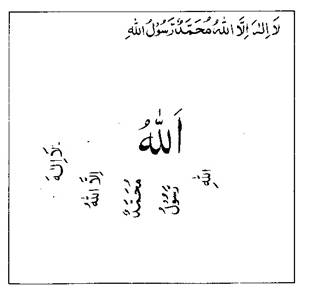 لَا اِلٰهَ اِلَّا اللهُ مُحَمَّدٌ رَّسُوْلُ اللهِ
اَللهُ
لَا اِلٰهَ
اِلَّا اللهُ
مُحَمَّدٌ
رَّسُوْلُ
اللهِ